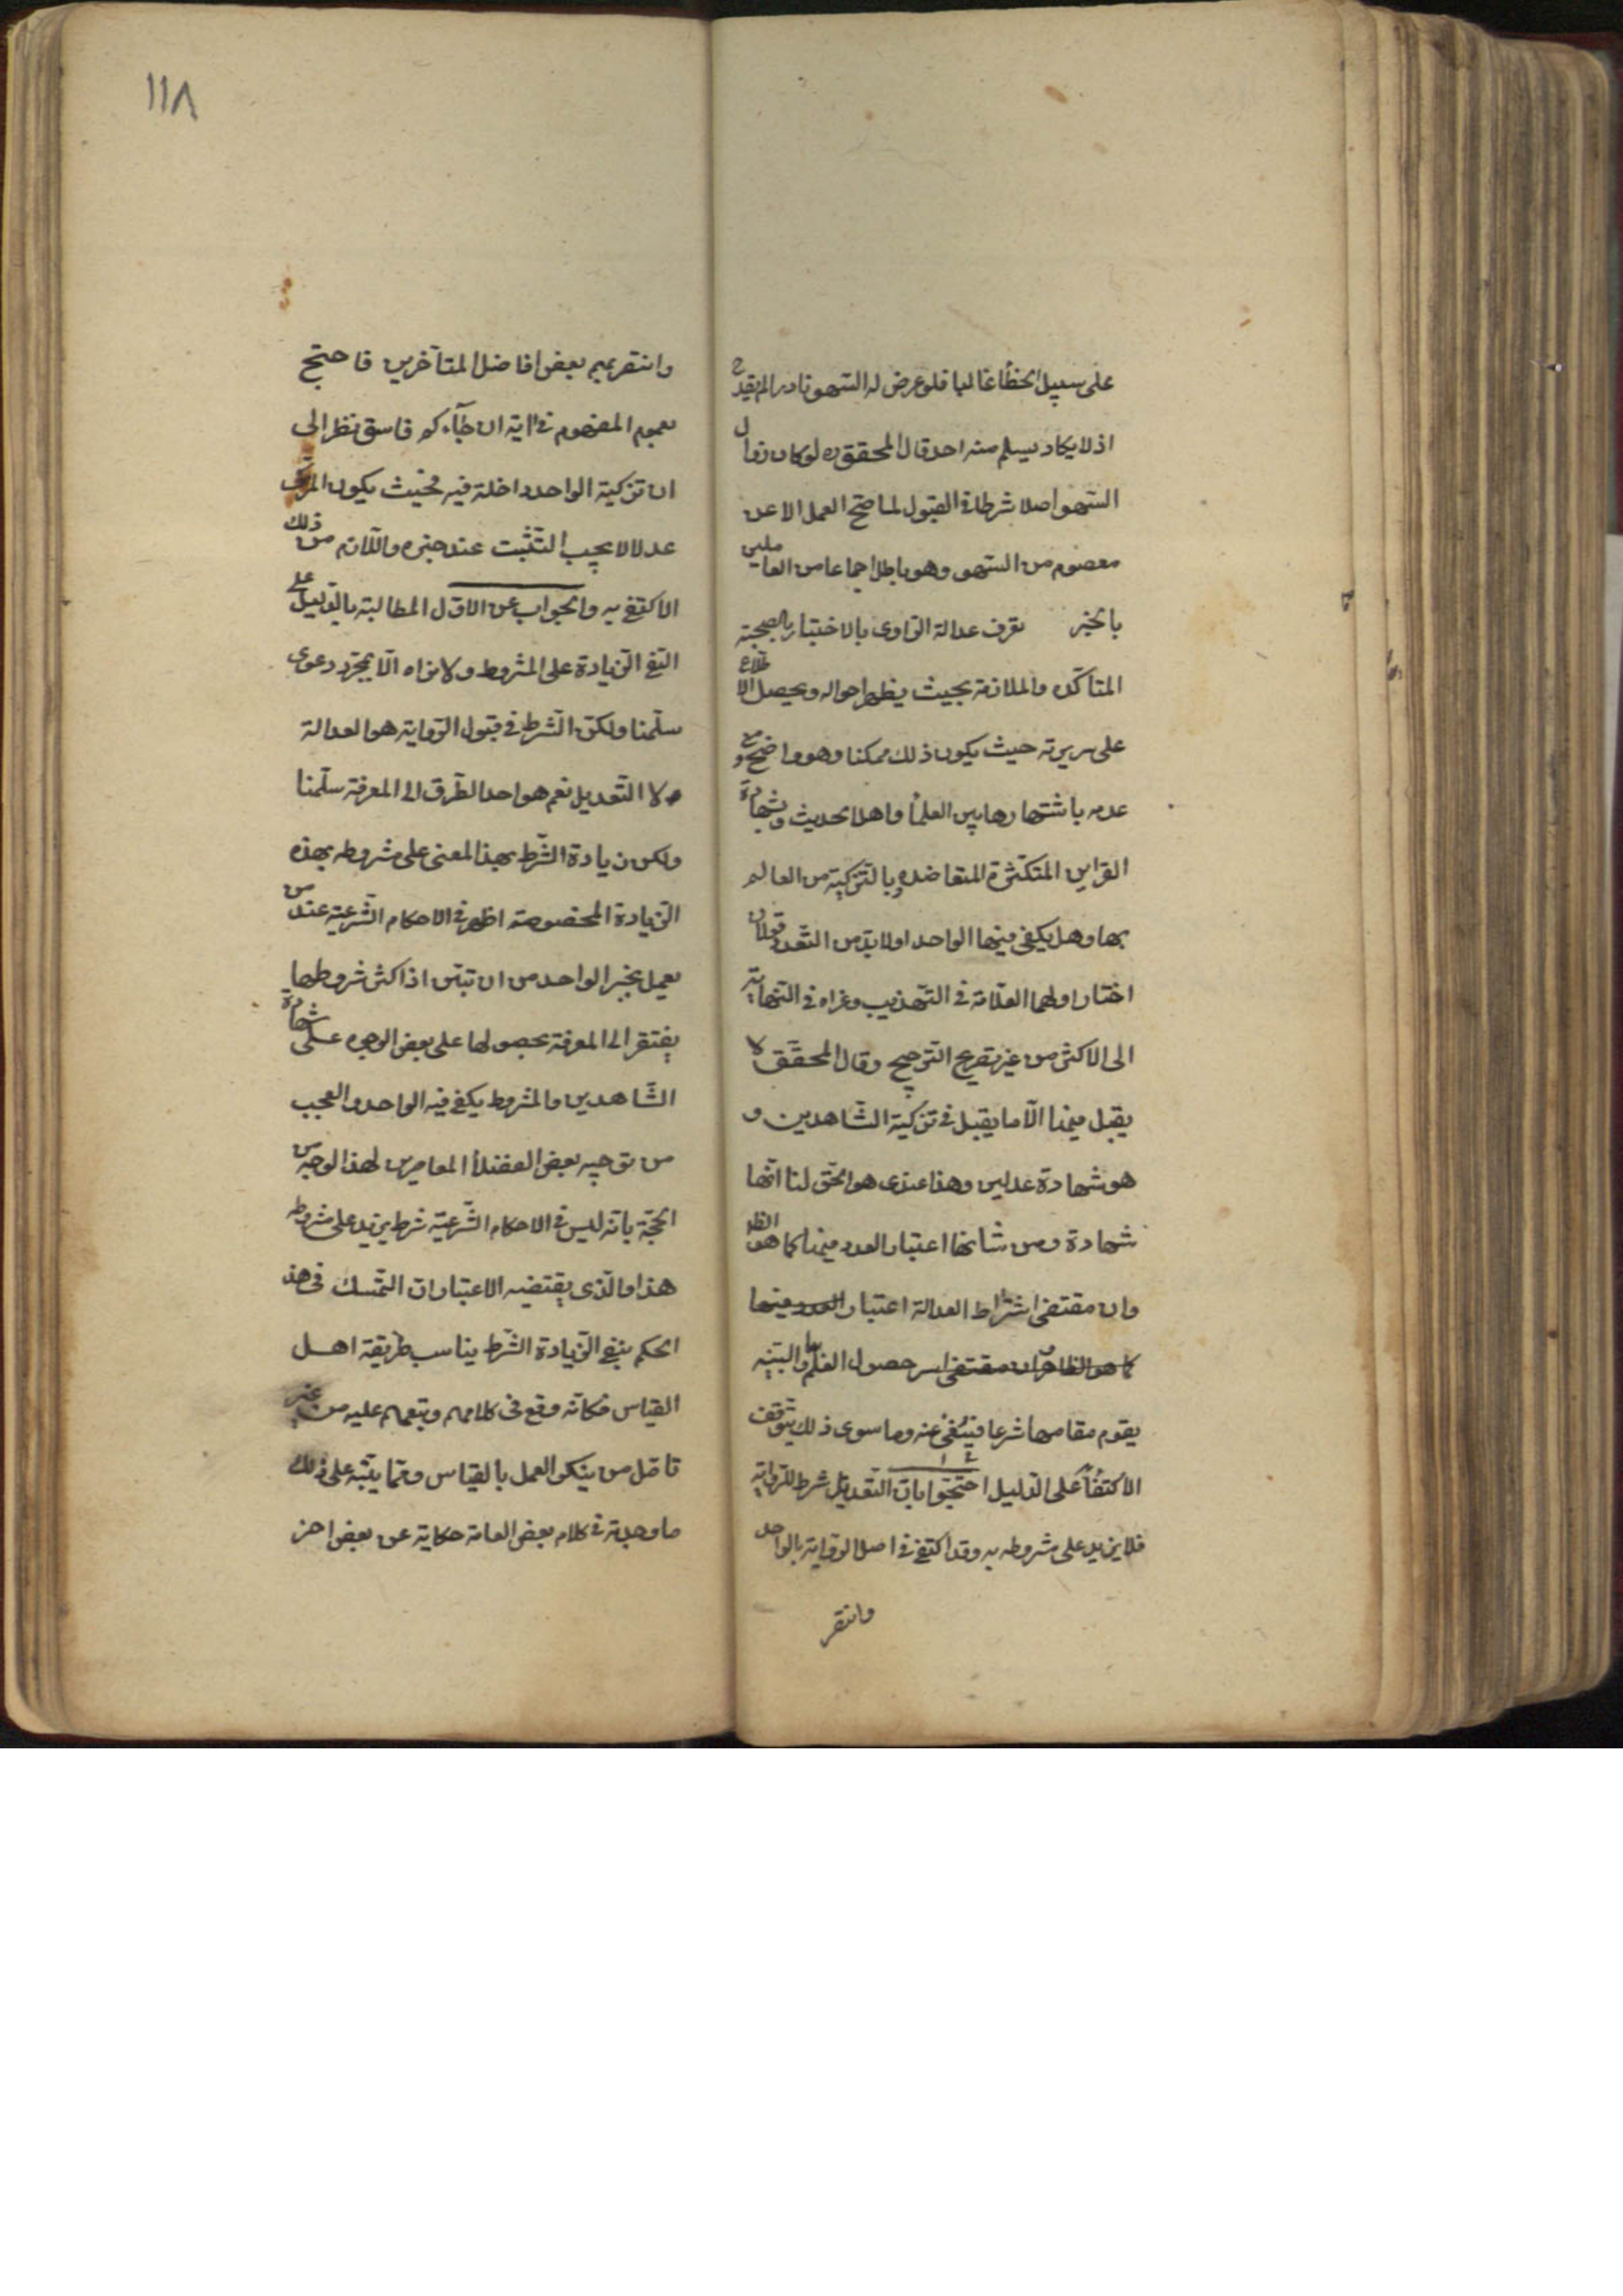 على سبيل الخطأ غالبا فلو عرض له السهو نادرا لم يقدح
اذ لا يكاد يسلم منه احد قال المحقق ره لو كان زوال
السهو اصلا شرطا في القبول لما صح العمل الا عن
معصوم من السهو وهو باطل اجماعا من العاملين
بالخبر تعرف عدالة الراوى بالاختبار بالصحبة
المتاكده والملازمة بحيث يظهر احواله ويحصل الاطلاع
على سريرته حيث يكون ذلك ممكنا وهو واضح ومع
عدمه باشتهارها بين العلمأ واهل الحديث وبشهادة
القراين المتكثرة المتعاضده وبالتزكية من العالم
بها وهل يكفى فيها الواحد اولابد من التعدد قولان
اختار اولهما العلامة في التهذيب وعزاه في النهاية
الى الاكثر من غير تصريح الترجيح وقال المحقق لا
يقبل فيها الا ما يقبل في تزكية الشاهدين و
هو شهادة عدلين وهذا عندى هو الحق لنا انها
شهادة ومن شانها اعتبار العدد فيها كما هو الظ
وان مقتضى اشتراط العدالة اعتبار العدد فيها
كما هو الظاهر ان مقتضى اسر حصول العلم بها والبينه
يقوم مقامها شرعا فيستغنى عنه وما سوى ذلك يتوقف
الاكتفأ على الدليل احتجوا بان التعديل شرط للرواية
فلا يزيد على مشروطه به وقد اكتفى في اصل الرواية بالواحد
وانتصر
١١٨
وانتصر بهم بعض افاضل المتأخرين فاحتج
بعموم المفهوم في اية ان جآءكم فاسق نظر الى
ان تزكية الواحد داخلة فيه فحيث يكون المزكى
عدلا لا يجب التثبت عند خبره واللازم من ذلك
الاكتفى به والجواب عن الاول المطالبة بالدليل على
النفى الزيادة على المشروط ولا نراه الا بمجرد دعوى
سلمنا ولكن الشرط في قبول الرواية هو العدالة
لا التعديل نعم هو احد الطرق الى المعرفة سلمنا
ولكن زيادة الشرط بهذا المعنى على مشروطه بهذه
الزيادة المخصوصة اظهر في الاحكام الشرعية عند من
يعمل بخبر الواحد من ان تبين اذ اكثر شروطها
يفتقر الى المعرفة بحصولها على بعض الوجوه على شهادة
الشاهدين والمشروط يكفى فيه الواحد والعجب
من توجيه بعض الفضلأ المعاصرين لهذا الوجه من
الحجة بانه ليس في الاحكام الشرعية شرط يزيد على مشروطه
هذا والذى يقتضيه الاعتبار ان التمسك في هذ
الحكم بنفى الزيادة الشرط يناسب طريقة اهل
القياس فكانه وقع فى كلامهم وتبعهم عليه من غير
تامل من ينكر العمل بالقياس ومما ينبه على ذلك
ما وجدته في كلام بعض العامة حكاية عن بعض اخر